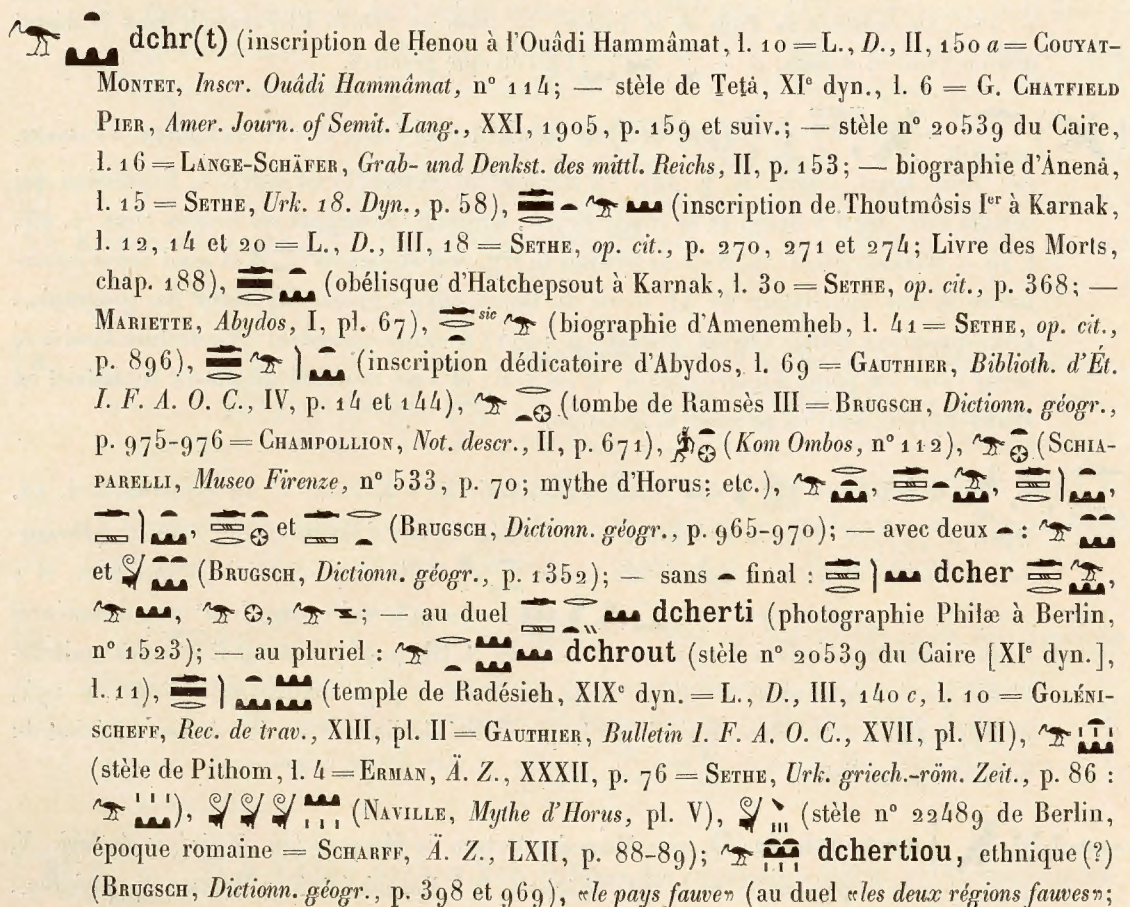 dchr(t) (inscription de Ḥenou à l'Ouâdi Hammâmat, l. 10 = L., D., II, 150 a = Couyat-
Montet, Inscr. Ouâdi Hammâmat, n° 114; — stèle de Teṭȧ, XIe dyn., l. 6 = G. Chatfield
Pier, Amer. Journ. of Semit. Lang., XXI, 1905, p. 159 et suiv.; — stèle n° 20539 du Caire,
l. 16 = Lange-Schäfer, Grab- und Denkst. des mittl. Reichs, II, p. 153; — biographie d'Ȧnenȧ,
l. 15 = Sethe, Urk. 18. Dyn., p. 58), (inscription de Thoutmôsis Ier à Karnak,
l. 12, 14 et 20 = L., D., III, 18 = Sethe, op. cit., p. 270, 271 et 274; Livre des Morts,
chap. 188), (obélisque d'Hatchepsout à Karnak, l. 30 = Sethe, op. cit., p. 368; —
Mariette, Abydos, I, pl. 67), sic (biographie d'Amenemḥeb, l. 41 = Sethe, op. cit.,
p. 896), (inscription dédicatoire d'Abydos, l. 69 = Gauthier, Biblioth. d'Ét.
I. F. A. O. C., IV, p. 14 et 144), (tombe de Ramsès III = Brugsch, Dictionn. géogr.,
p. 975-976 = Champollion, Not. descr., II, p. 671), (Kom Ombos, n° 112), (Schia-
parelli, Museo Firenze, n° 533, p. 70; mythe d'Horus; etc.), , , ,
, et (Brugsch, Dictionn. géogr., p. 965-970); — avec deux :
et (Brugsch, Dictionn. géogr., p. 1352); — sans final : dcher ,
, , ; — au duel dcherti (photographie Philæ à Berlin,
n° 1523); — au pluriel : dchrout (stèle n° 20539 du Caire [XIe dyn.],
l. 11), (temple de Radésieh, XIXe dyn. = L., D., III, 140 c, l. 10 = Goléni-
scheff, Rec. de trav., XIII, pl. II = Gauthier, Bulletin I. F. A. O. C., XVII, pl. VII),
(stèle de Pithom, l. 4 = Erman, Ä. Z., XXXII, p. 76 = Sethe, Urk. griech.-röm. Zeit., p. 86 :
), (Naville, Mythe d'Horus, pl. V), (stèle n° 22489 de Berlin,
époque romaine = Scharff, Ä. Z., LXII, p. 88-89); dchertiou, ethnique (?)
(Brugsch, Dictionn. géogr., p. 398 et 969), «le pays fauve» (au duel «les deux régions fauves»;